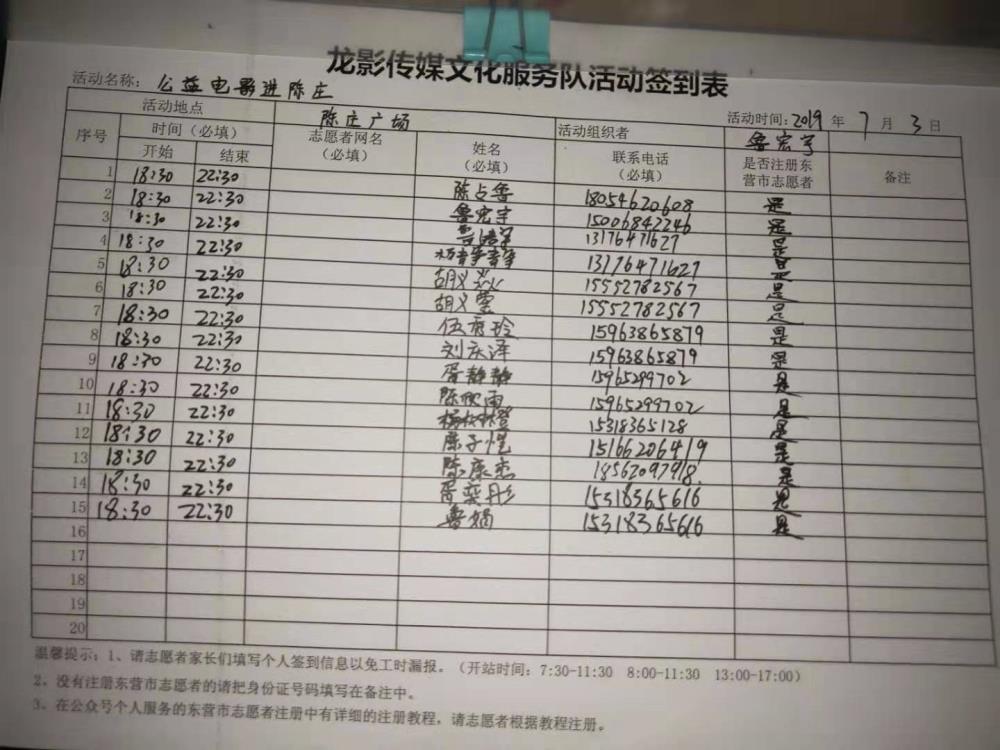 龙影传媒文化服务队活动签到表
活动名称：公益电影进陈庄
活动时间：2019 年 7 月 3 日
活动地点 陈庄广场 活动组织者 鲁宏宇
序号 时间（必填） 志愿者网名（必填） 姓名（必填） 联系电话（必填） 是否注册东营市志愿者 备注
开始 结束
1 18:30 22:30 陈占鲁 18054620608 是
2 18:30 22:30 鲁宏宇 15006842246 是
3 18:30 22:30 13176471627 是
4 18:30 22:30 13176471627 是
5 18:30 22:30 胡义 15552782567 是
6 18:30 22:30 胡义 15552782567 是
7 18:30 22:30 伍秀玲 15963865879 是
8 18:30 22:30 刘庆泽 15963865879 是
9 18:30 22:30 胥静静 15965299702 是
10 18:30 22:30 陈欣雨 15965299702 是
11 18:30 22:30 15318365128 是
12 18:30 22:30 子恺 15166206419 是
13 18:30 22:30 陈康杰 18562097918 是
14 18:30 22:30 胥奕彤 15318365616 是
15 18:30 22:30 鲁娟 15318365616 是
16
17
18
19
20
温馨提示：1、请志愿者家长们填写个人签到信息以免工时漏报。（开站时间：7:30-11:30 8:00-11:30 13:00-17:00）
2、没有注册东营市志愿者的请把身份证号码填写在备注中。
3、在公众号个人服务的东营市志愿者注册中有详细的注册教程，请志愿者根据教程注册。